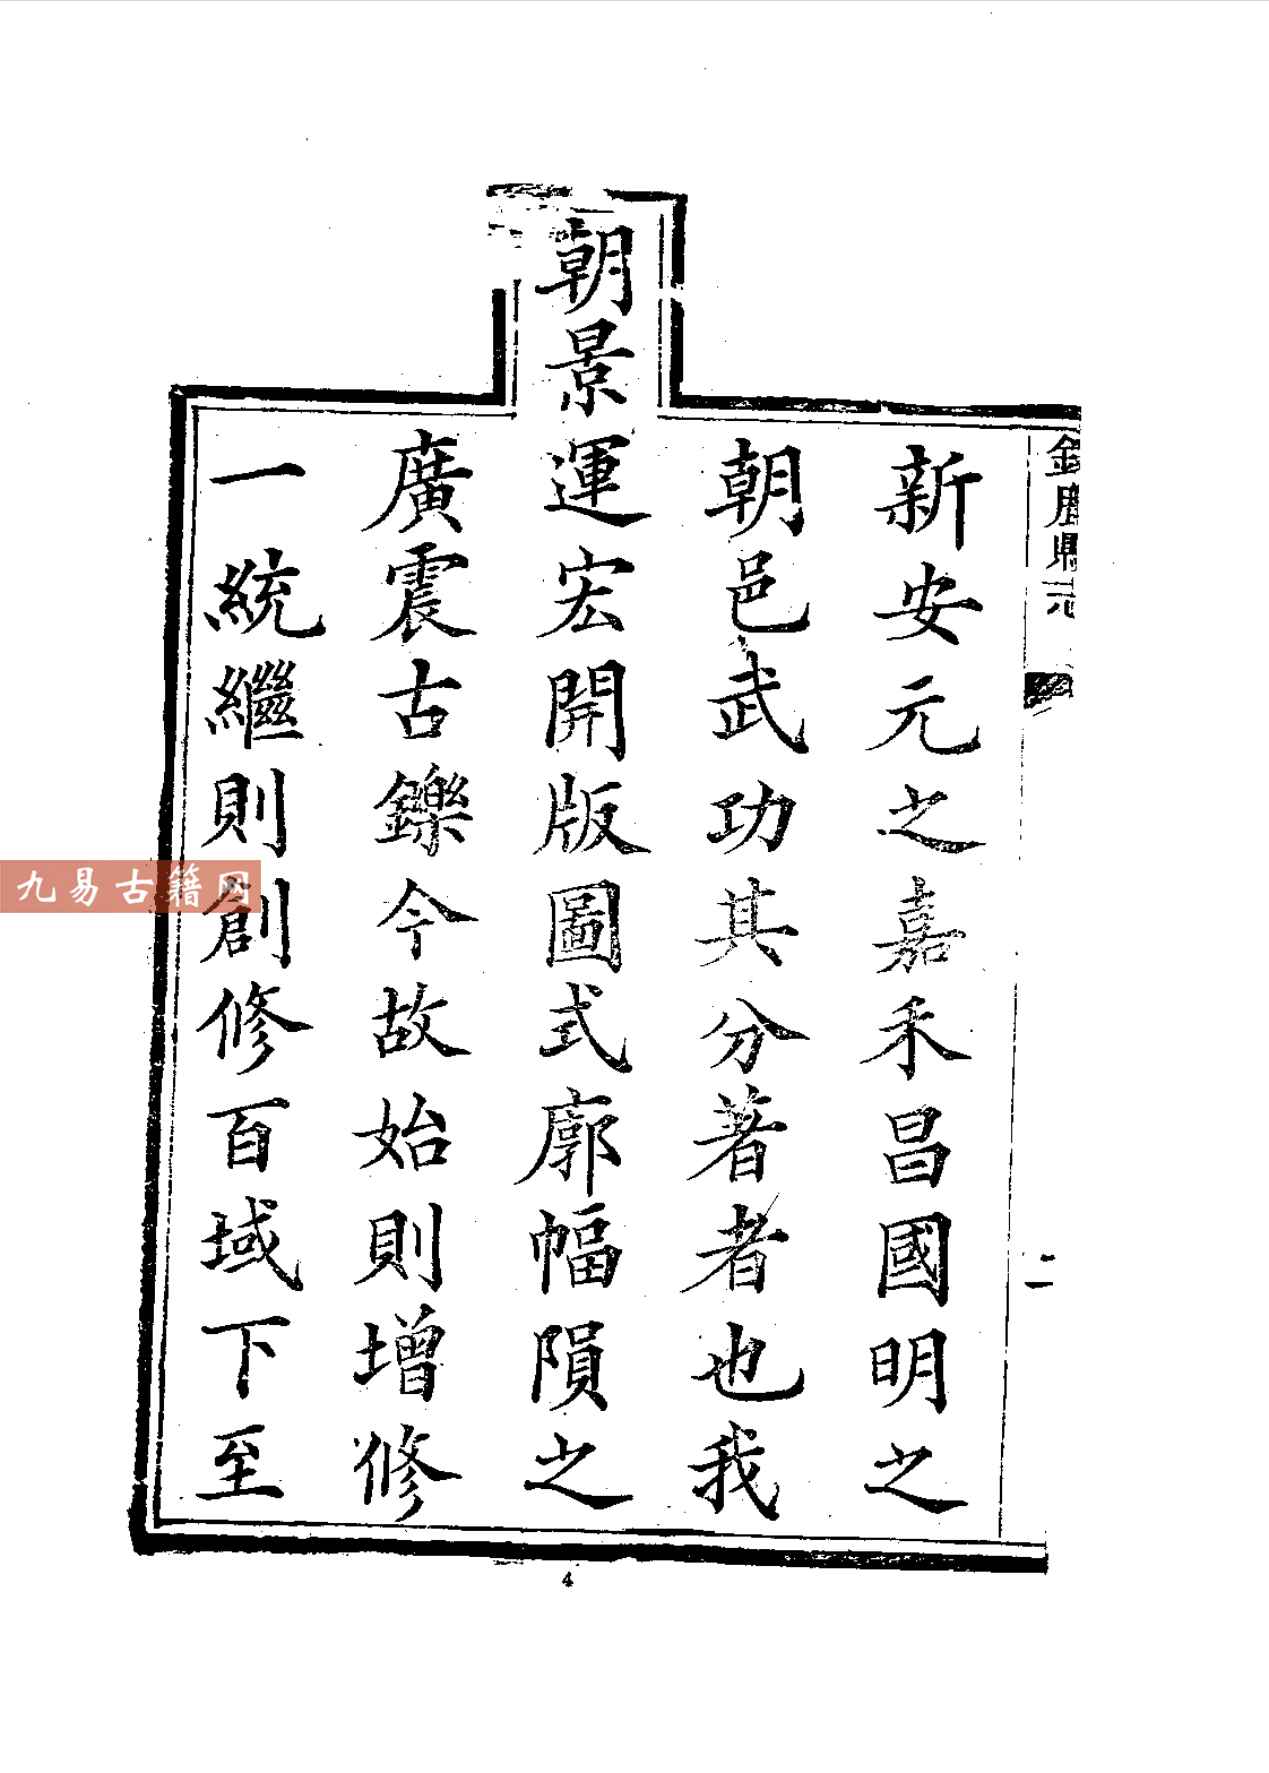 新安元之嘉禾昌國明之
朝邑武功其分著者也我
朝景運宏開版圖式廓幅隕之
廣震古鑠今故始則增修
一統繼則創修百域下至
二
九易古籍网
4